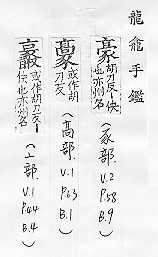 龍龕手鑑
豪 胡刀反俠
也亦州名
(豕部 V.2 P.58 B.9)
或作胡
刀反
(高部 V.1 P.63 B.1)
或作胡刀反
俠也亦州名
(亠部 V.1 P.44 B.4)